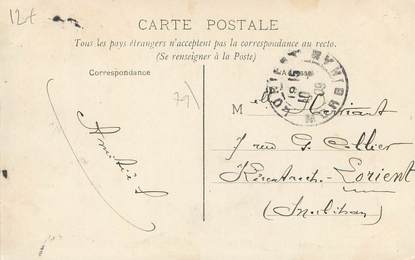 12f
CARTE POSTALE
Tous les pays étrangers n'acceptent pas la correspondance au recto.
(Se renseigner à la Poste)
Correspondance
79
MORBIHAN
M
Amitiés
7 rue
Kerentrech-Lorient
(Morbihan)